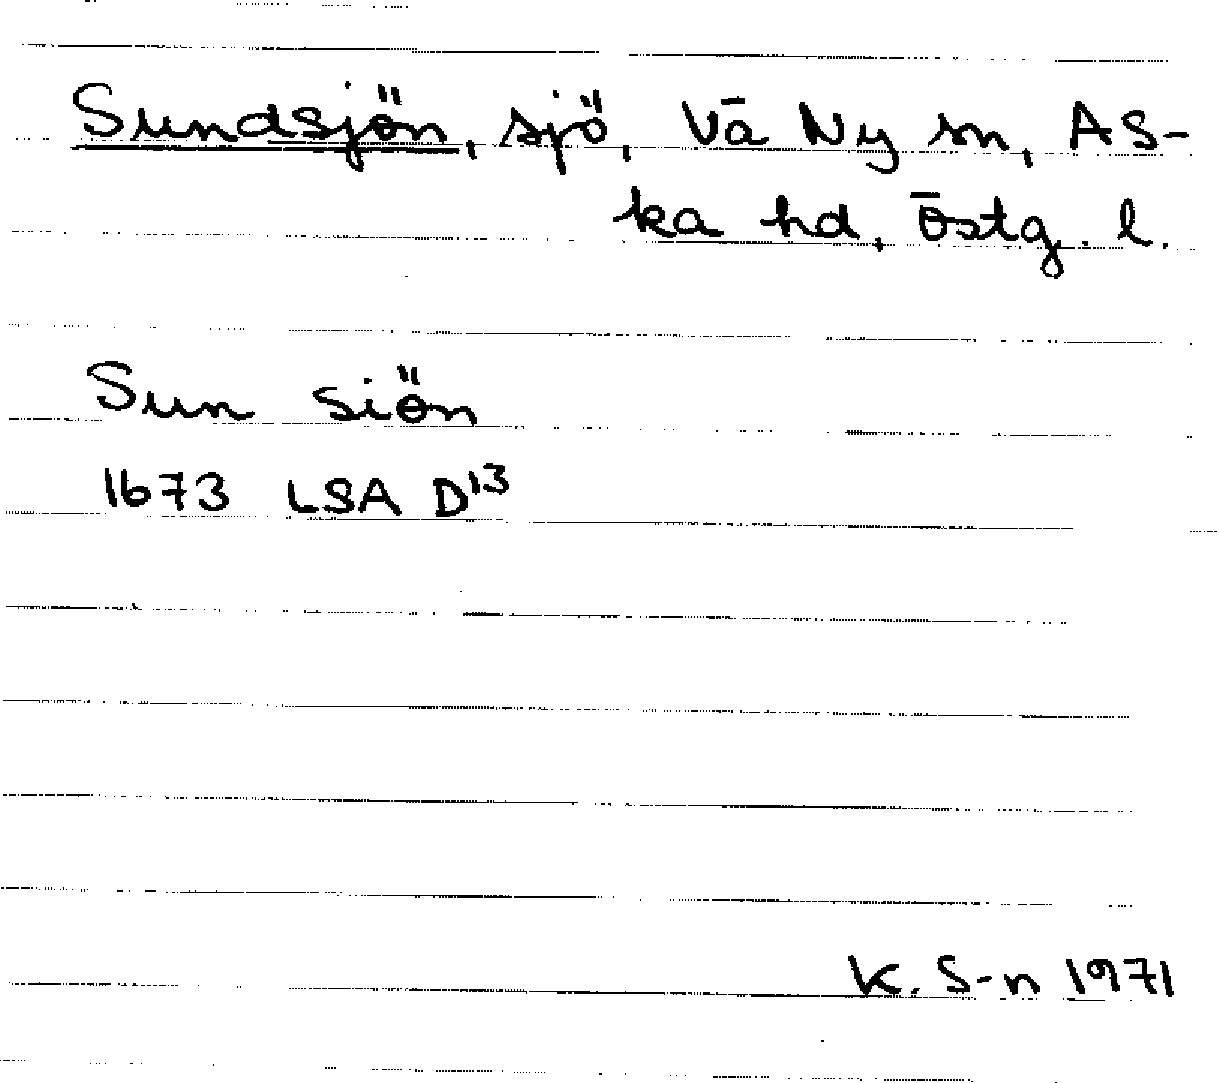 Sundsjön, sjö, Vä Ny sn, As-
ka hd, Östg. l.
Sun siön
1673 LSA D¹³
K. S-n 1971